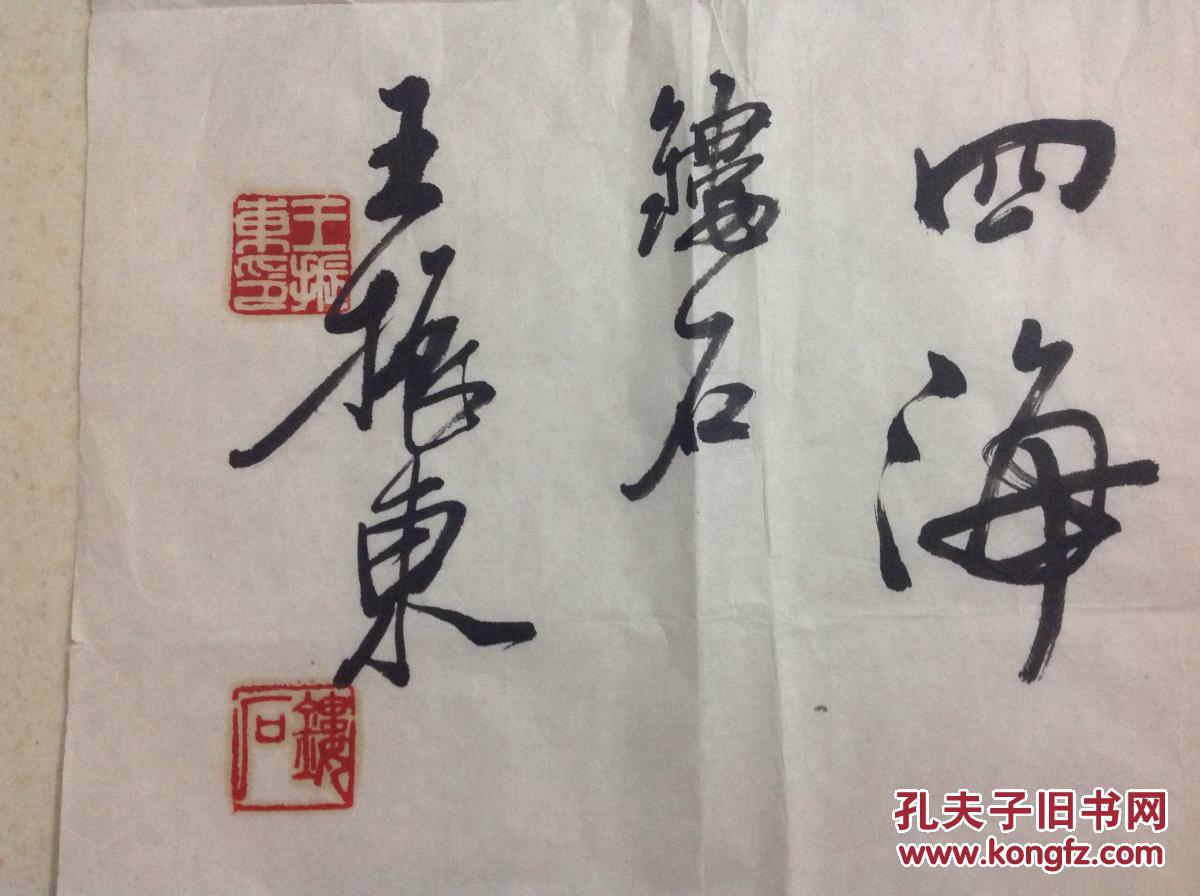 四海
鏤石
王振東
王振東印
鏤石
孔夫子旧书网
www.kongfz.com